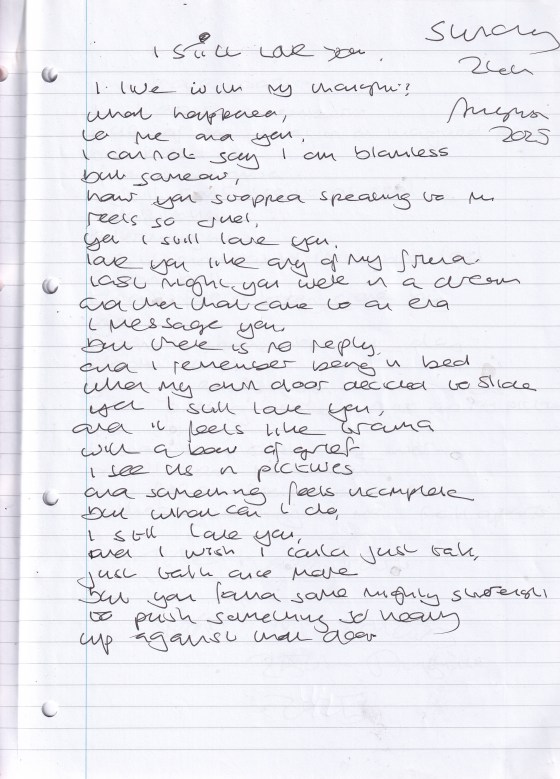 I still love you.
Sunday
24th
August
2025
I live with my thoughts?
what happened,
to me and you,
I cannot say I am blameless
but somehow,
how you stopped speaking to me
feels so cruel,
yet I still love you,
love you like any of my friend
last night, you were in a dream
and then that came to an end
I message you
but there is no reply,
and I remember being in bed
when my own door decided to slide
yet I still love you,
and it feels like trauma
with a bow of grief
I see us in pictures
and something feels incomplete
but what can I do,
I still love you,
and I wish I could just talk,
just talk once more
but you found some mighty strength
to push something so heavy
up against that door